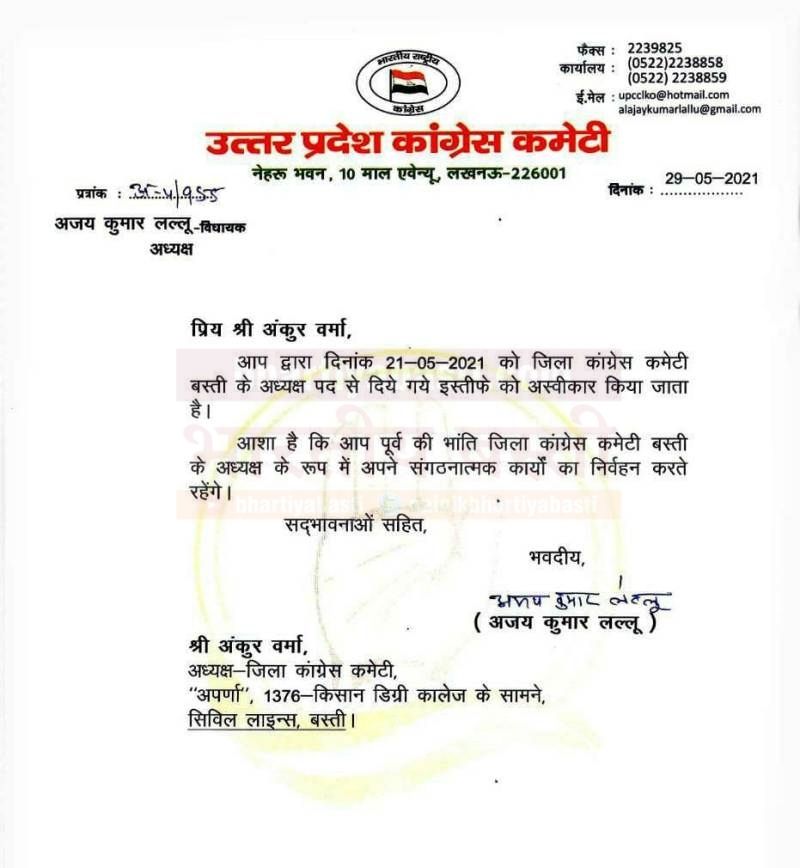 भारतीय राष्ट्रीय
कांग्रेस
फैक्स : 2239825
कार्यालय : (0522)2238858
(0522) 2238859
ई.मेल : upcclko@hotmail.com
alajaykumarlallu@gmail.com
उत्तर प्रदेश कांग्रेस कमेटी
नेहरू भवन, 10 माल एवेन्यू, लखनऊ-226001
पत्रांक :
दिनांक : 29-05-2021
अजय कुमार लल्लू-विधायक
अध्यक्ष
प्रिय श्री अंकुर वर्मा,
आप द्वारा दिनांक 21-05-2021 को जिला कांग्रेस कमेटी
बस्ती के अध्यक्ष पद से दिये गये इस्तीफे को अस्वीकार किया जाता
है।
आशा है कि आप पूर्व की भांति जिला कांग्रेस कमेटी बस्ती
के अध्यक्ष के रूप में अपने संगठनात्मक कार्यों का निर्वहन करते
रहेंगे।
bhartiyabasti
सद्भावनाओं सहित,
भवदीय,
अजय कुमार लल्लू
( अजय कुमार लल्लू )
श्री अंकुर वर्मा,
अध्यक्ष-जिला कांग्रेस कमेटी,
"अपर्णा", 1376-किसान डिग्री कालेज के सामने,
सिविल लाइन्स, बस्ती।